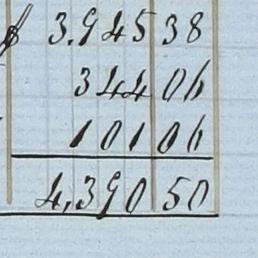 $ 3.945 38
344 06
101 06
4,390 50